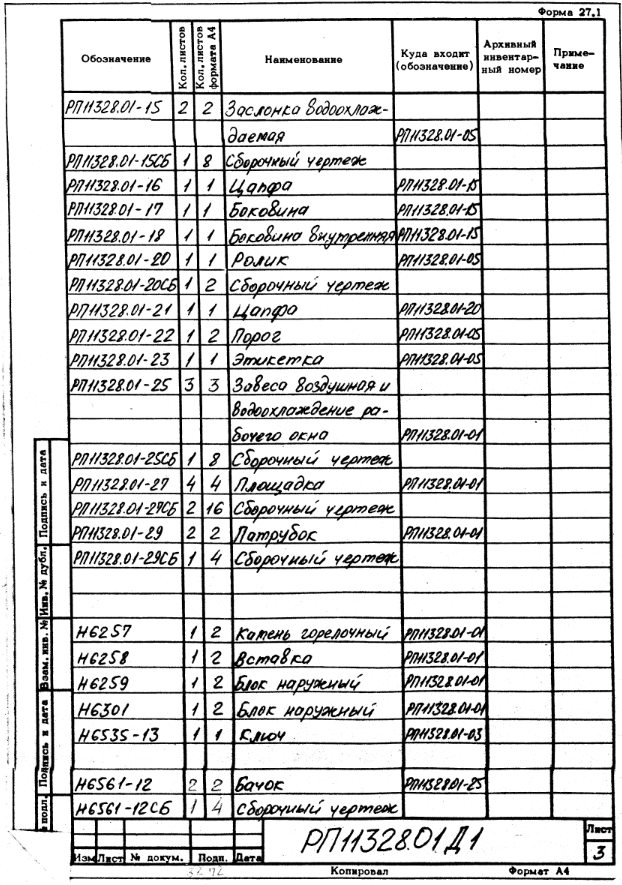 Форма 27.1
Обозначение Кол. листов Кол. листов формата А4 Наименование Куда входит (обозначение) Архивный инвентар- ный номер Приме- чание
РП11328.01-15 2 2 Заслонка водоохлаж-
даемая РП11328.01-05
РП11328.01-15СБ 1 8 Сборочный чертеж
РП11328.01-16 1 1 Цапфа РП11328.01-15
РП11328.01-17 1 1 Боковина РП11328.01-15
РП11328.01-18 1 1 Боковина внутренняя РП11328.01-15
РП11328.01-20 1 1 Ролик РП11328.01-05
РП11328.01-20СБ 1 2 Сборочный чертеж
РП11328.01-21 1 1 Цапфа РП11328.01-20
РП11328.01-22 1 2 Порог РП11328.01-05
РП11328.01-23 1 1 Этикетка РП11328.01-05
РП11328.01-25 3 3 Завеса воздушная и
водоохлаждение ра-
бочего окна РП11328.01-01
РП11328.01-25СБ 1 8 Сборочный чертеж
РП11328.01-27 4 4 Площадка РП11328.01-01
РП11328.01-27СБ 2 16 Сборочный чертеж
РП11328.01-29 2 2 Патрубок РП11328.01-01
РП11328.01-29СБ 1 4 Сборочный чертеж
Н6257 1 2 Камень горелочный РП11328.01-01
Н6258 1 2 Вставка РП11328.01-01
Н6259 1 2 Блок наружный РП11328.01-01
Н6301 1 2 Блок наружный РП11328.01-01
Н6535-13 1 1 Ключ РП11328.01-03
Н6561-12 2 2 Бачок РП11328.01-25
Н6561-12СБ 1 4 Сборочный чертеж
Подпись и дата
Инв. № дубл.
Взам. инв. №
Подпись и дата
№ подл.
РП11328.01Д1
Лист
3
Изм Лист № докум. Подп. Дата
Копировал Формат А4